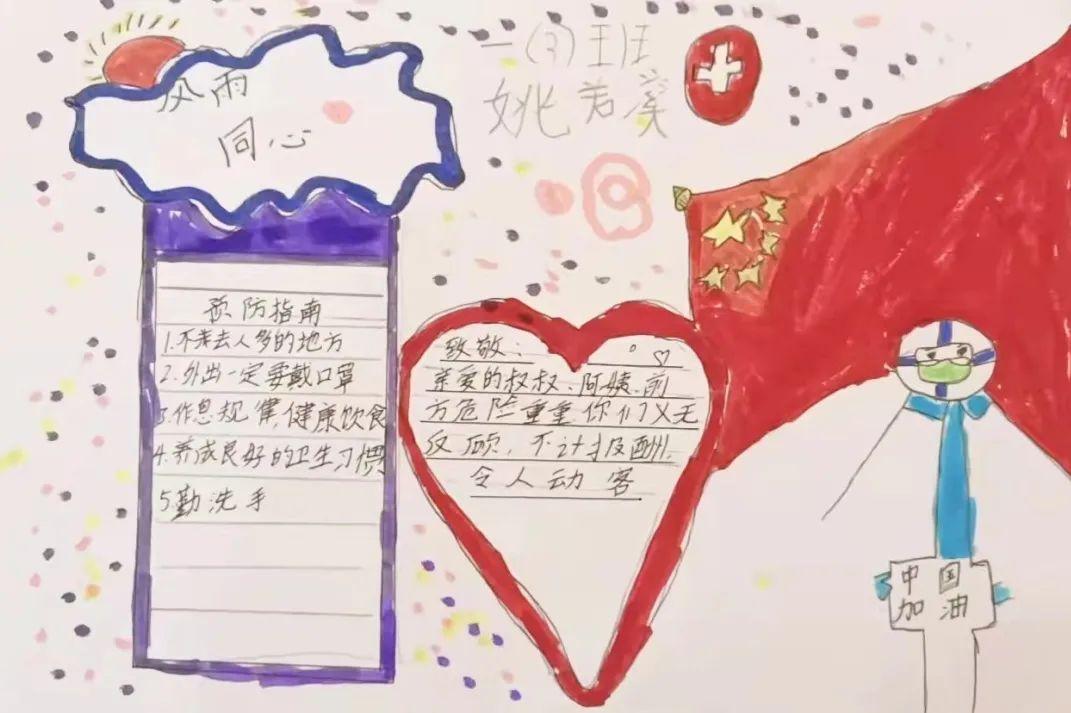 风雨
同心
一(3)班
姚
预防指南
1.不去人多的地方
2.外出一定要戴口罩
3.作息规律,健康饮食
4.养成良好的卫生习惯
5.勤洗手
致敬:
亲爱的叔叔、阿姨,前
方危险重重你们义无
反顾,不计报酬,
令人动客
中国
加油